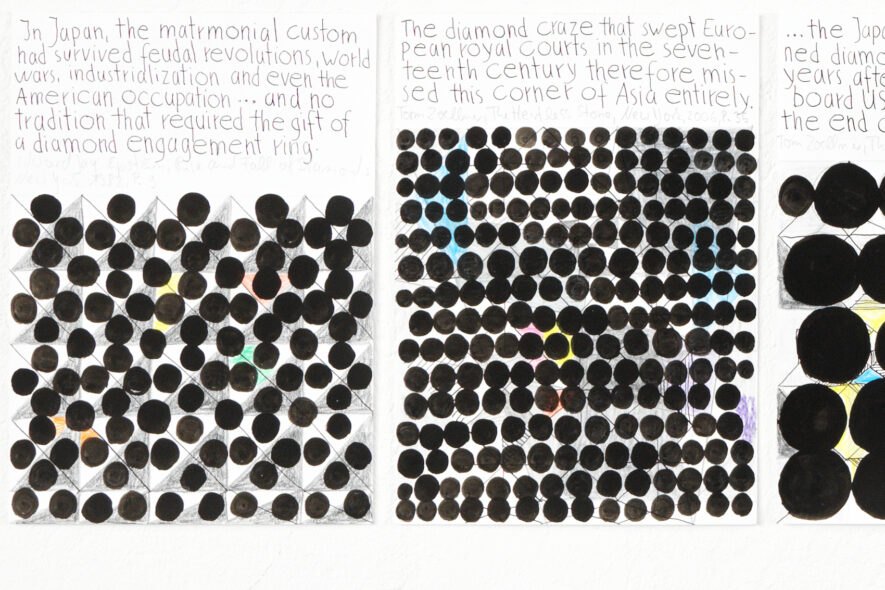 In Japan, the matrmonial custom
had survived feudal revolutions, world
wars, industrialization and even the
American occupation ... and no
tradition that required the gift of
a diamond engagement ring.
The diamond craze that swept Euro-
pean royal courts in the seven-
teenth century therefore mis-
sed this corner of Asia entirely.
Tom Zoellner, The Heartless Stone, New York, 2006, P. 35
... the Japa
ned diamo
years afte
board US
the end o
Tom Zoellner, Th